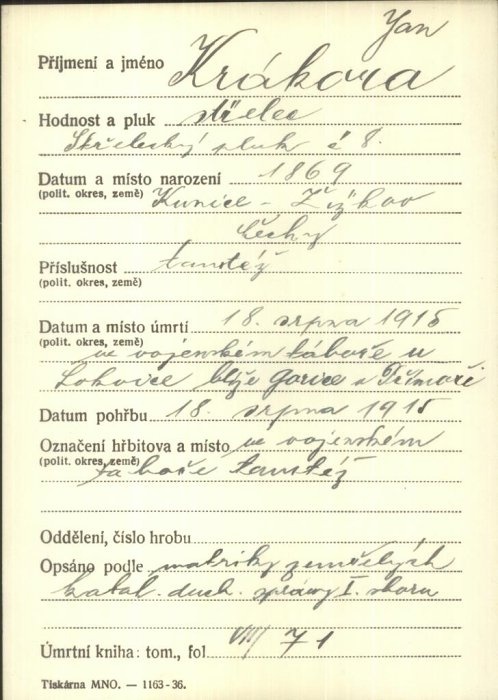 Jan
Příjmení a jméno Krákora
Hodnost a pluk střelec
Střelecký pluk č 8.
Datum a místo narození 1869
(polit. okres, země) Kunice - Žižkov
Čechy
Příslušnost tamtéž
(polit. okres, země)
Datum a místo úmrtí 18. srpna 1915
(polit. okres, země) ve vojenském táboře u
Lokvice blíže Gorice v Přímoří
Datum pohřbu 18. srpna 1915
Označení hřbitova a místo ve vojenském
(polit. okres, země) táboře tamtéž
Oddělení, číslo hrobu
Opsáno podle matriky zemřelých
katol. duch. správy I. sboru
Úmrtní kniha: tom., fol. VIII/71
Tiskárna MNO. — 1163-36.